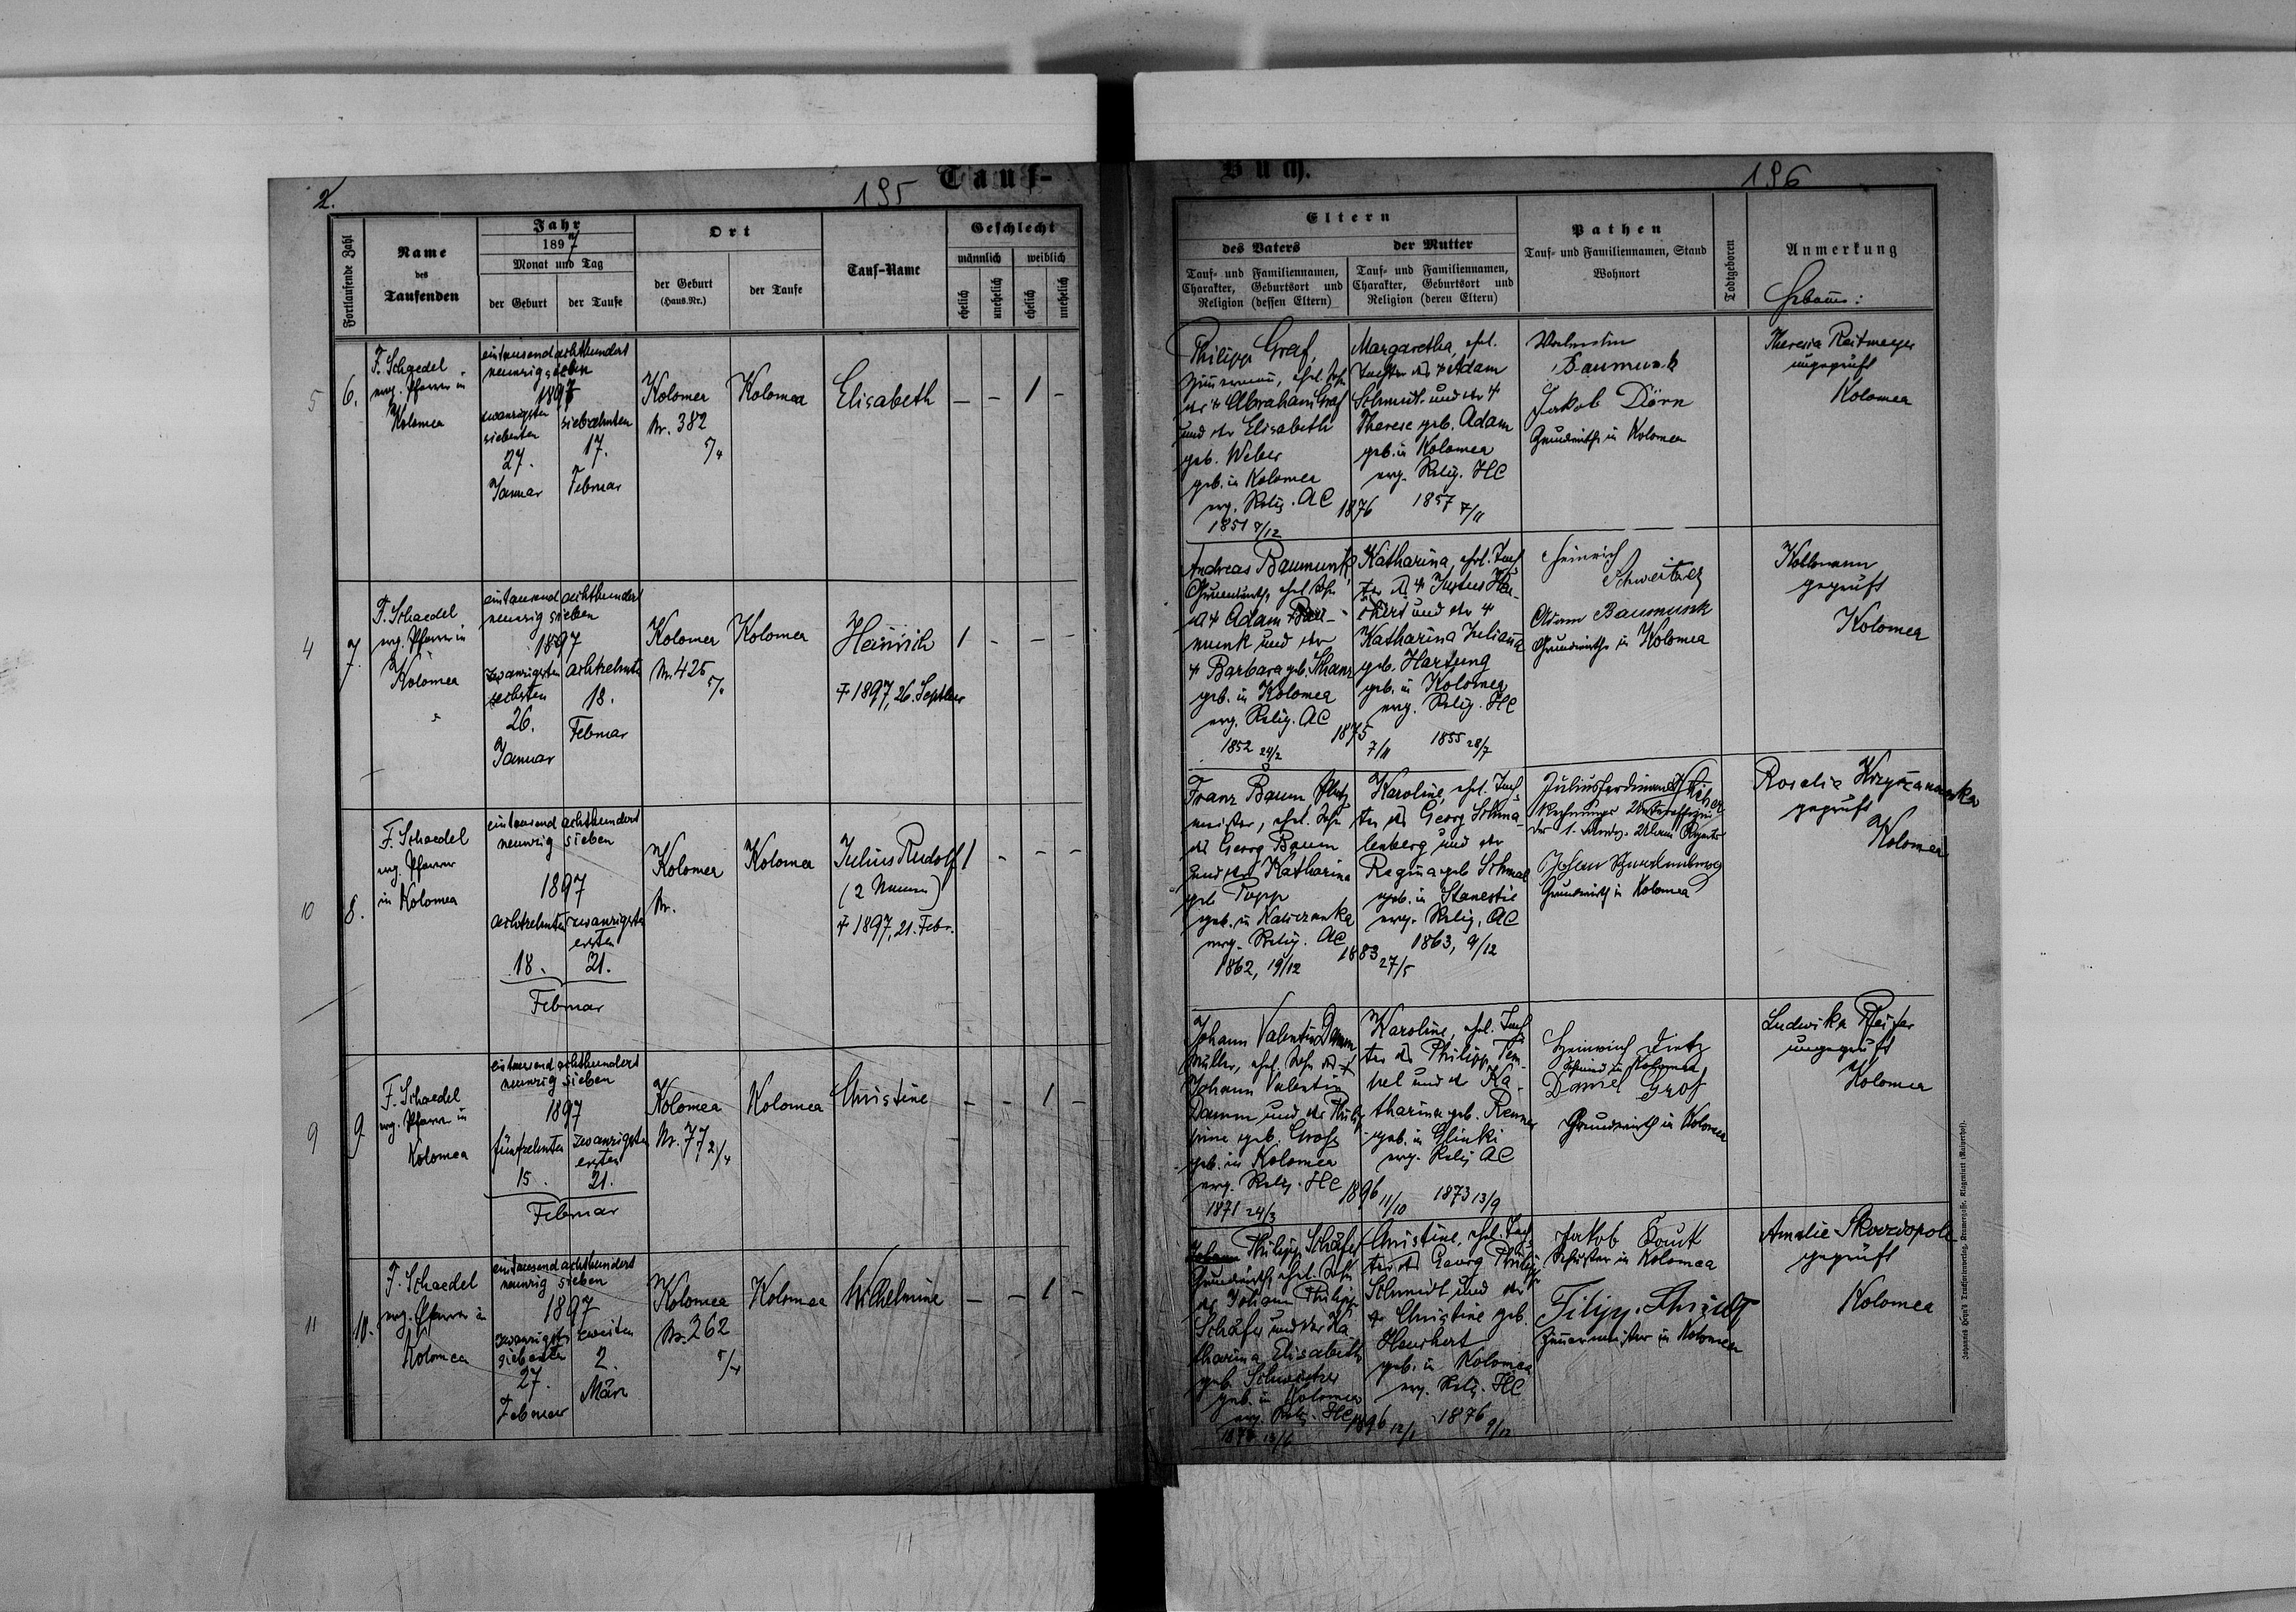 2.
195
Tauf-
Fortlaufende Zahl
Name
des
Taufenden
Jahr
1897
Monat und Tag
der Geburt
der Taufe
Ort
der Geburt
(Haus.Nr.)
der Taufe
Tauf-Name
Geschlecht
männlich
weiblich
ehelich
unehelich
ehelich
unehelich
Buch.
196
Eltern
des Vaters
der Mutter
Tauf- und Familiennamen,
Charakter, Geburtsort und
Religion (dessen Eltern)
Tauf- und Familiennamen,
Charakter, Geburtsort und
Religion (deren Eltern)
Pathen
Tauf- und Familiennamen, Stand
Wohnort
Todtgeboren
Anmerkung
5
6.
F. Schaedel
evg. Pfarrer in
Kolomea
eintausend achthundert
neunzig sieben
1897
zwanzigsten
siebenten
27.
Januar
siebzehnten
17.
Februar
Kolomea
Nr. 382
Kolomea
Elisabeth
— — 1 -
Philipp Graf,
Zimmermann, ehel. Sohn
des † Abraham Graf
und der Elisabeth
geb. Weber
geb. in Kolomea
evg. Relig. AC
1851 7/12
1876
Margaretha, ehel.
Tochter des † Adam
Schmidt und der †
Therese geb. Adam
geb. in Kolomea
evg. Relig. HC
1857 7/11
Baumunk
Jakob Dörn
Grundwirthe in Kolomea
Theresia Reitmeyer
ungeprüft
Kolomea
4
7.
F. Schaedel
evg. Pfarrer in
Kolomea
eintausend achthundert
neunzig sieben
1897
zwanzigsten
sechsten
26.
Januar
achtzehnten
18.
Februar
Kolomea
Nr. 425
Kolomea
Heinrich
1 - - -
† 1897, 26. September
Andreas Baumunk,
Grundwirth, ehel. Sohn
d. † Adam Bau-
munk und der
† Barbara geb.
geb. in Kolomea
evg. Relig. AC
1852 24/2
1875
7/11
Katharina, ehel. Toch-
ter d. † Justus
und der †
Katharina Juliana
geb. Hartung
geb. in Kolomea
evg. Relig. HC
1855 28/7
Heinrich
Schweitzer
Adam Baumunk
Grundwirthe in Kolomea
Kollmann
geprüft
Kolomea
10
8.
F. Schaedel
evg. Pfarrer
in Kolomea
eintausend achthundert
neunzig sieben
1897
achtzehnten
18.
zwanzigsten
ersten
21.
Februar
Kolomea
Nr.
Kolomea
Julius Rudolf
(2 Namen)
1 - - -
† 1897, 21. Febr.
Franz Baum, Platz
meister, ehel. Sohn
des Georg Baum
und der Katharina
geb. Popp
geb. in
evg. Relig. AC
1862, 19/12
1883
27/5
Karoline, ehel. Toch-
ter des Georg Schma-
lenberg und der
Regina geb. Schmal
geb. in Stanestie
evg. Relig. AC
1863, 9/12
Julius Ferdinand
Grundwirth in Kolomea
Rosalie
geprüft
Kolomea
9
9
F. Schaedel
evg. Pfarrer in
Kolomea
eintausend achthundert
neunzig sieben
1897
fünfzehnten
15.
zwanzigsten
ersten
21.
Februar
Kolomea
Nr. 77
Kolomea
Christine
- - 1 -
Johann Valentin Damm
Müller, ehel. Sohn des †
Johann Valentin
Damm und der Philip-
pine geb. Grohs
geb. in Kolomea
evg. Relig. HC
1871 24/3
1896
11/10
Karoline, ehel. Toch-
ter des Philipp Tem-
pel und der Ka-
tharina geb. Renner
geb. in Slinki
evg. Relig. AC
1873 13/9
Heinrich Dietz
Schmied in Kolomea
Daniel Grof
Grundwirth in Kolomea
Ludwika Pfeifer
ungeprüft
Kolomea
11
10.
F. Schaedel
evg. Pfarrer in
Kolomea
eintausend achthundert
neunzig sieben
1897
zwanzigsten
siebenten
27.
Februar
zweiten
2.
März
Kolomea
Nr. 262
Kolomea
Wilhelmine
— — 1 -
Johann Philipp Schäfer
Grundwirth, ehel. Sohn
des Johann Philipp
Schäfer und der Ka
tharina Elisabeth
geb. Schweitzer
geb. in Kolomea
evg. Relig. HC
1896 12/1
Christine, ehel. Toch-
ter des Georg Philipp
Schmidt und der
† Christine geb.
geb. in Kolomea
evg. Relig. HC
1876 9/12
Jakob
Schuster in Kolomea
Filipp Schmidt
Zimmermeister in Kolomea
Amalie Skowzopole
geprüft
Kolomea